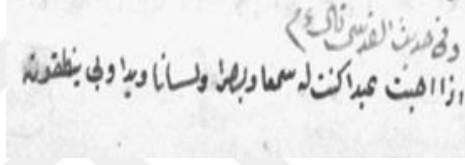 وفى حديث القدسى قال ع م
اذا احببت عبدا كنت له سمعا وبصرا ولسانا ويدا وبى ينطقون